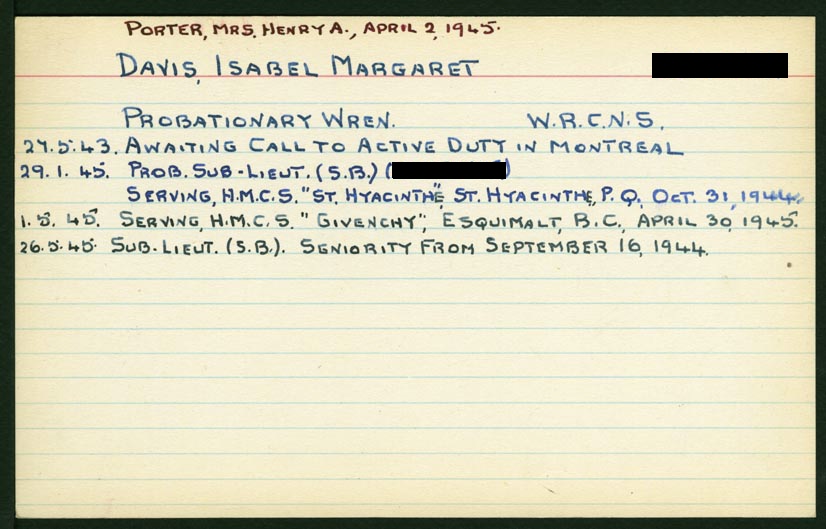 PORTER, MRS. HENRY A., APRIL 2, 1945.
DAVIS, ISABEL MARGARET
PROBATIONARY WREN. W.R.C.N.S.
27.5.43. AWAITING CALL TO ACTIVE DUTY IN MONTREAL
29.1.45. PROB. SUB-LIEUT. (S.B.) ( )
SERVING, H.M.C.S. "ST. HYACINTHE", ST. HYACINTHE, P.Q. OCT. 31, 1944.
1.5.45. SERVING, H.M.C.S. "GIVENCHY", ESQUIMALT, B.C., APRIL 30, 1945.
26.5.45. SUB-LIEUT. (S.B.). SENIORITY FROM SEPTEMBER 16, 1944.